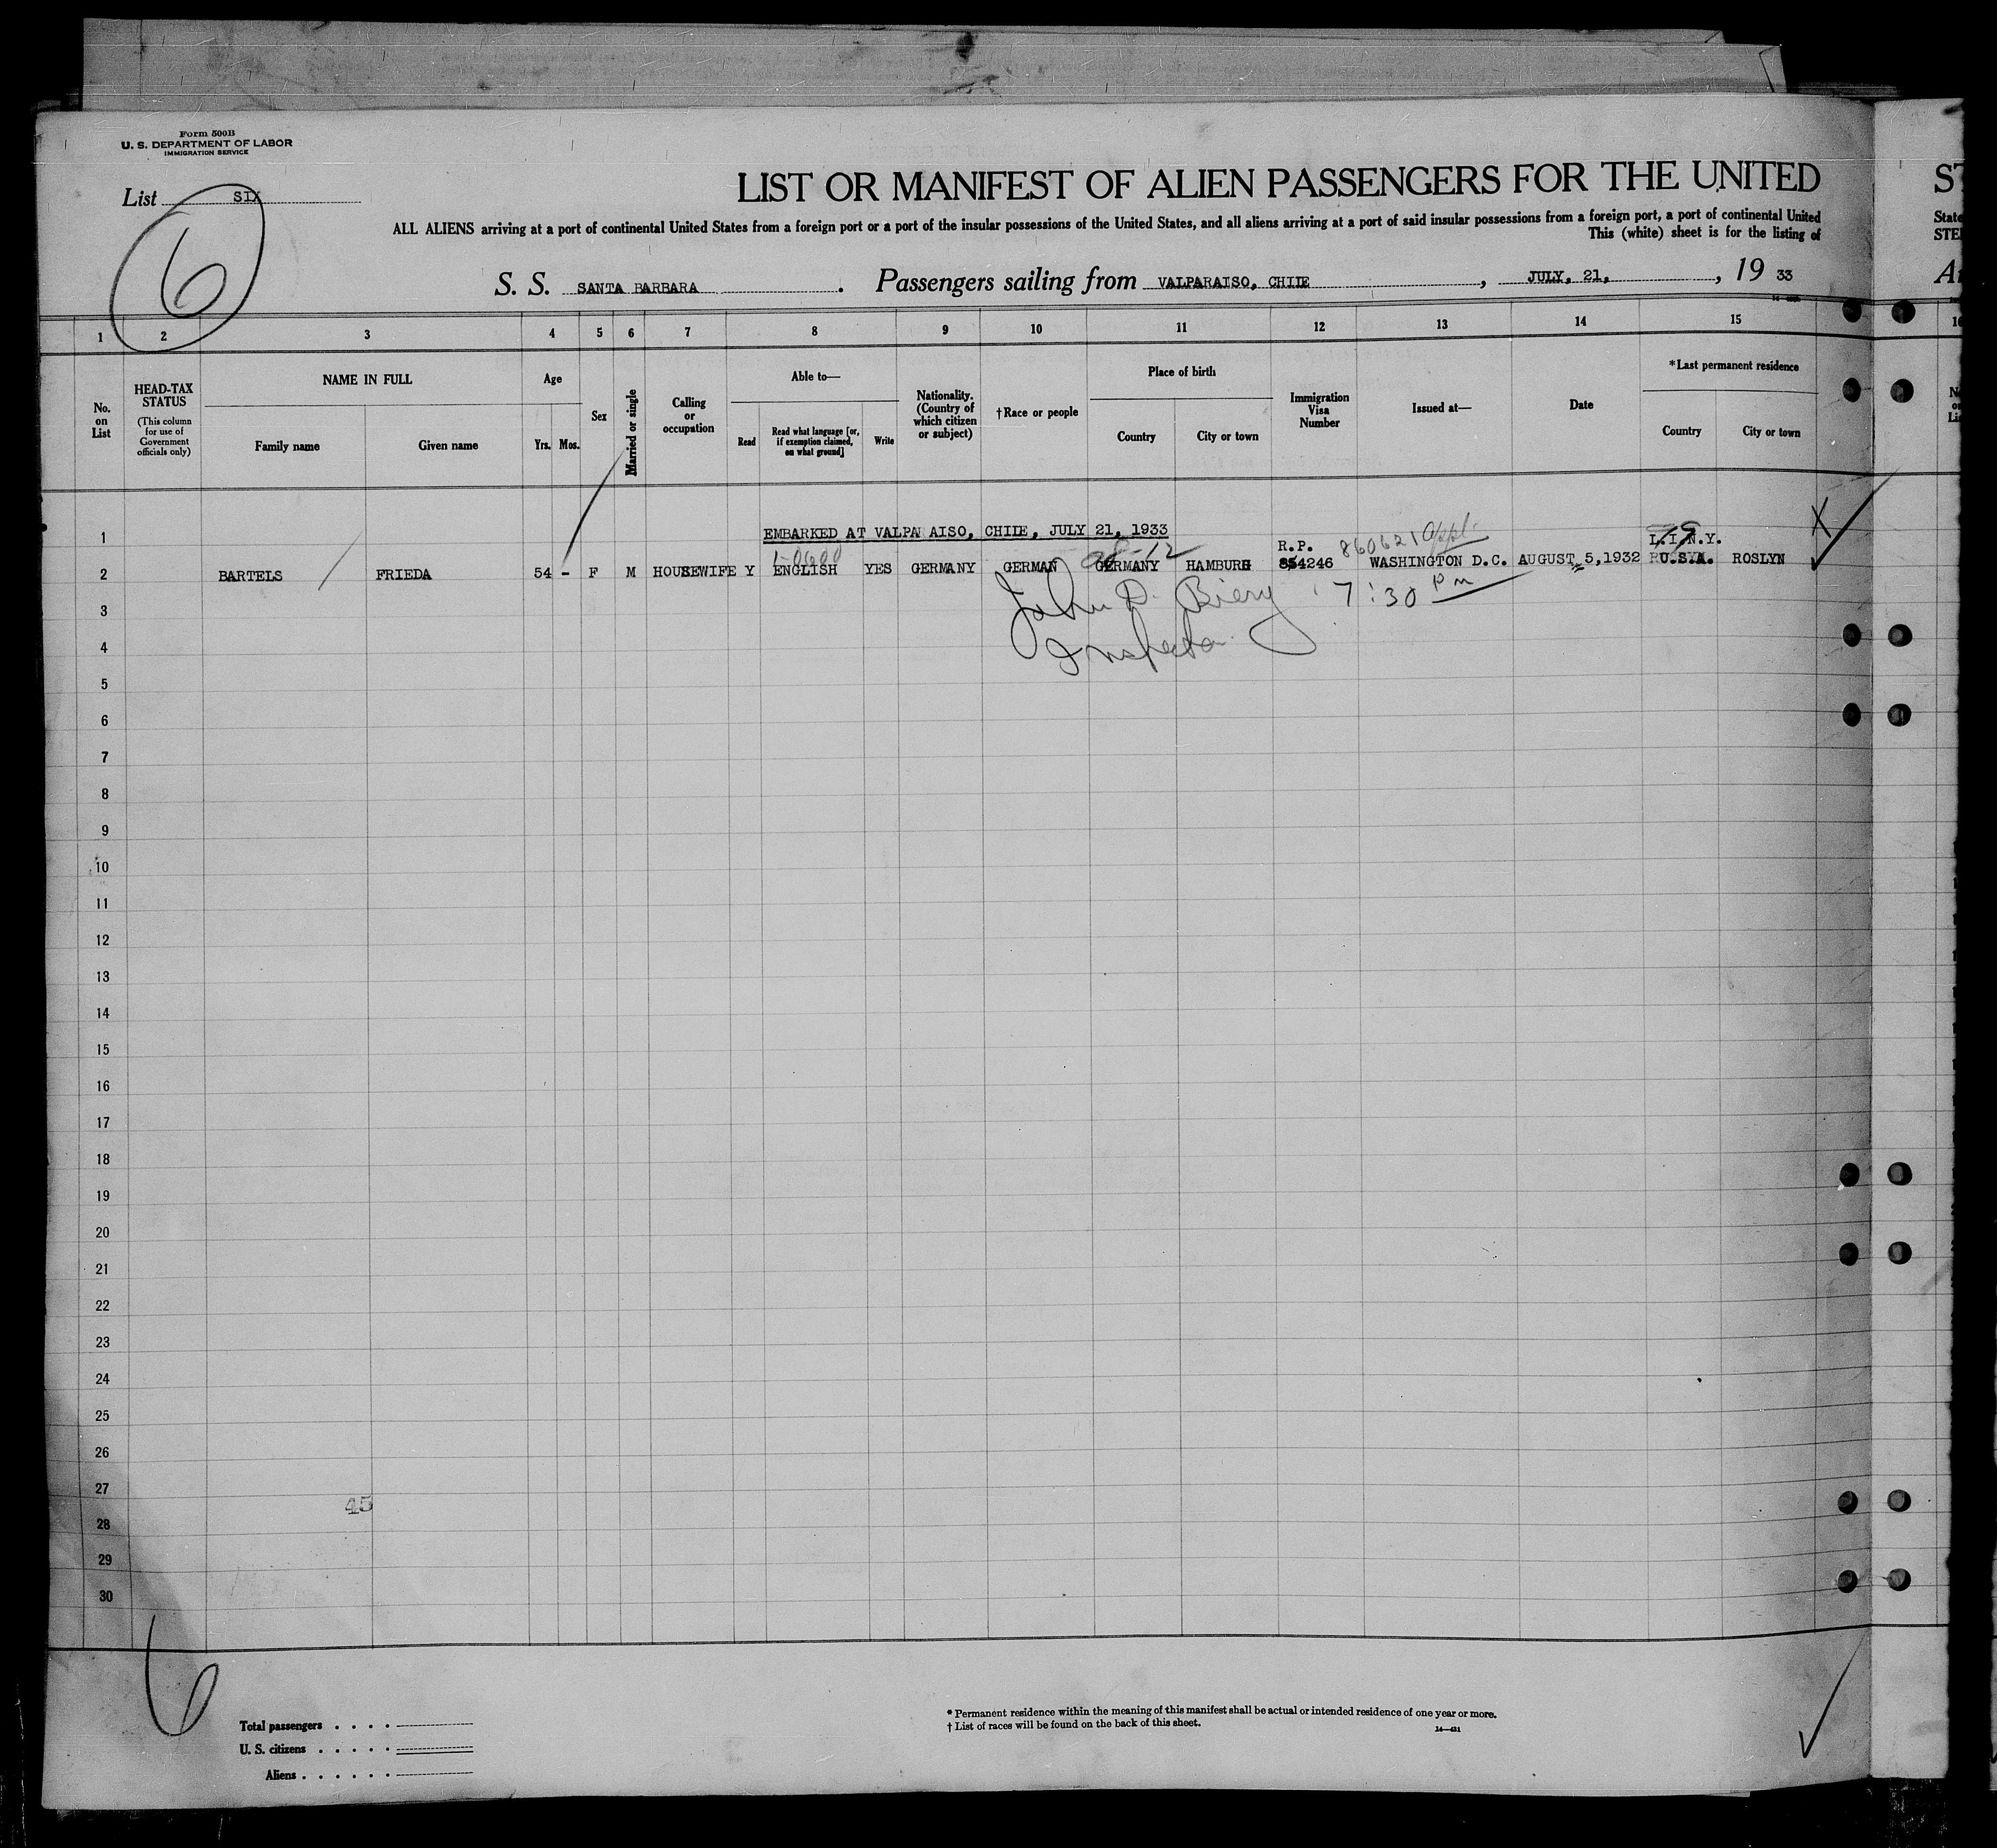 Form 500B
U. S. DEPARTMENT OF LABOR
IMMIGRATION SERVICE
List SIX
6
LIST OR MANIFEST OF ALIEN PASSENGERS FOR THE UNITED
ST
ALL ALIENS arriving at a port of continental United States from a foreign port or a port of the insular possessions of the United States, and all aliens arriving at a port of said insular possessions from a foreign port, a port of continental United
State
This (white) sheet is for the listing of
STE
S. S. SANTA BARBARA. Passengers sailing from VALPARAISO, CHILE, JULY, 21, , 19 33
1 2 3 4 5 6 7 8 9 10 11 12 13 14 15
No. on List
HEAD-TAX STATUS
(This column for use of Government officials only)
NAME IN FULL
Family name Given name
Age
Yrs. Mos.
Sex
Married or single
Calling or occupation
Able to—
Read Read what language [or, if exemption claimed, on what ground] Write
Nationality. (Country of which citizen or subject)
†Race or people
Place of birth
Country City or town
Immigration Visa Number
Issued at—
Date
*Last permanent residence
Country City or town
1 EMBARKED AT VALPA AISO, CHILE, JULY 21, 1933
R.P. 860621 Appl. L.I.N.Y. X
2 BARTELS FRIEDA 54 - F M HOUSEWIFE Y ENGLISH YES GERMANY GERMAN GERMANY HAMBURG 854246 WASHINGTON D.C. AUGUST 5,1932 U.S.A. ROSLYN
3 John D. Biery 7:30 pm
4 Inspector
5
6
7
8
9
10
11
12
13
14
15
16
17
18
19
20
21
22
23
24
25
26
27
45
28
29
30
6
Total passengers . . . .
U. S. citizens . . . . .
Aliens . . . . . .
* Permanent residence within the meaning of this manifest shall be actual or intended residence of one year or more.
† List of races will be found on the back of this sheet.
14—431